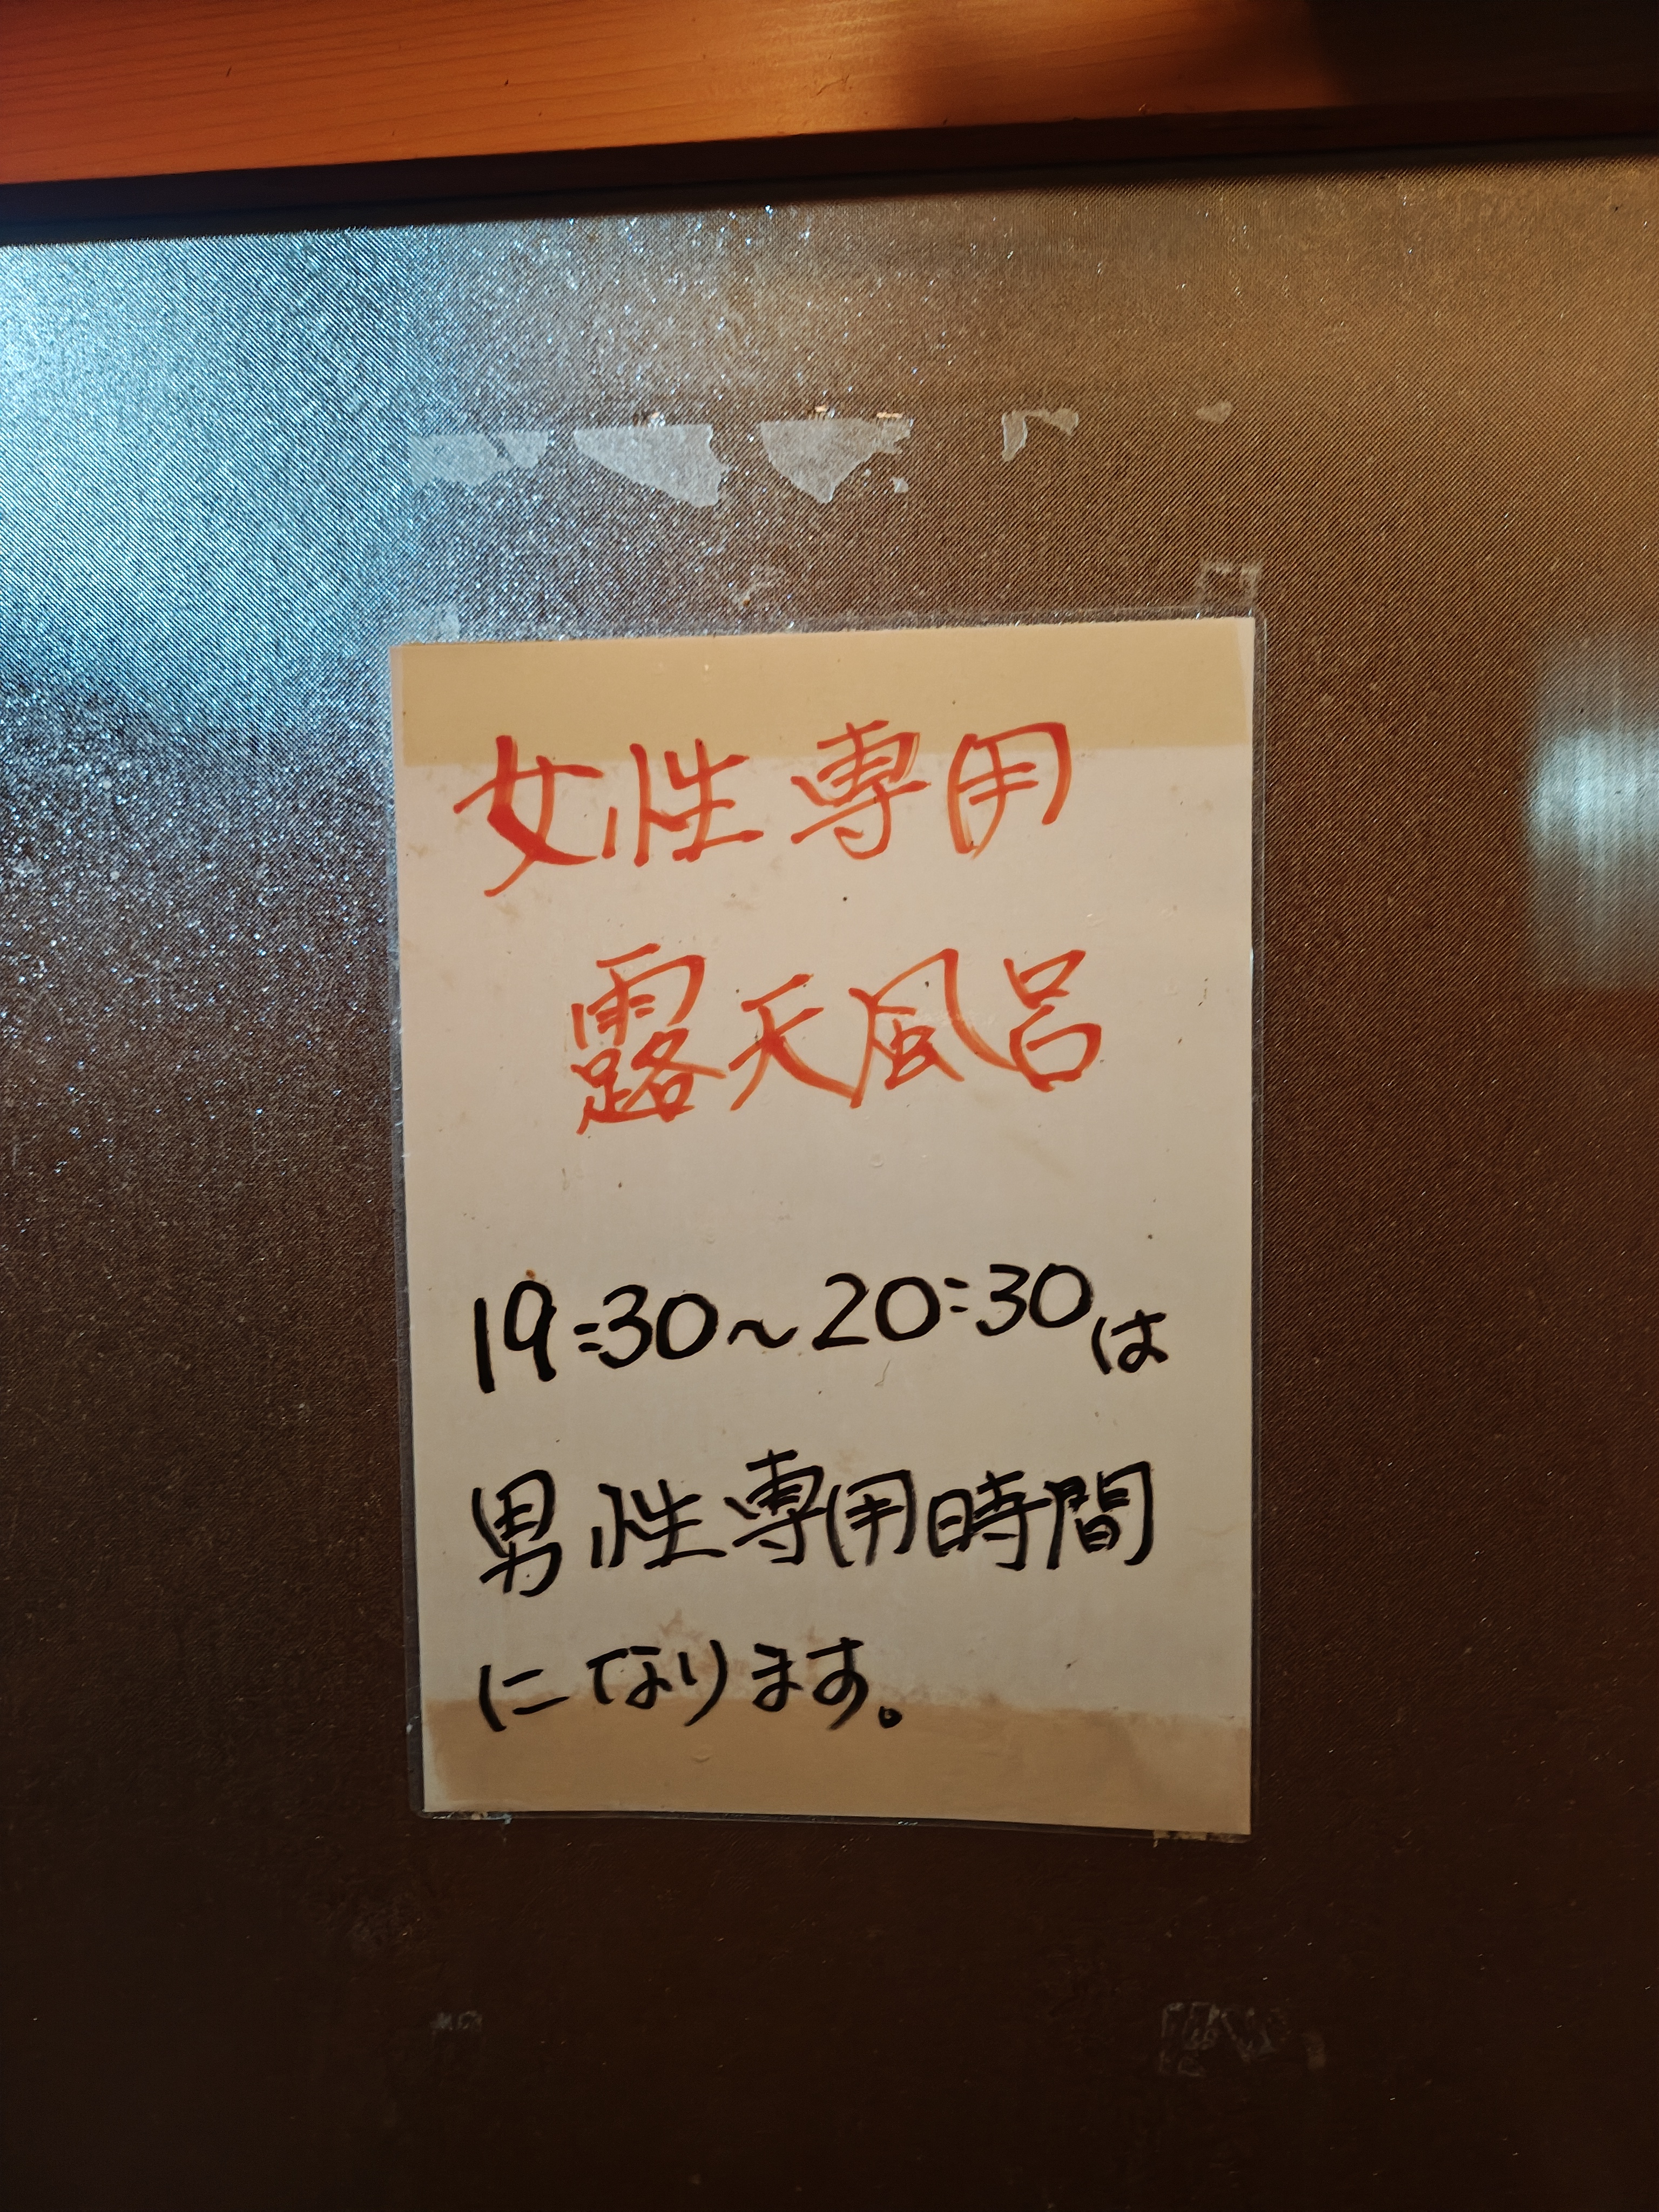 女性専用
露天風呂
19:30~20:30は
男性専用時間
になります。